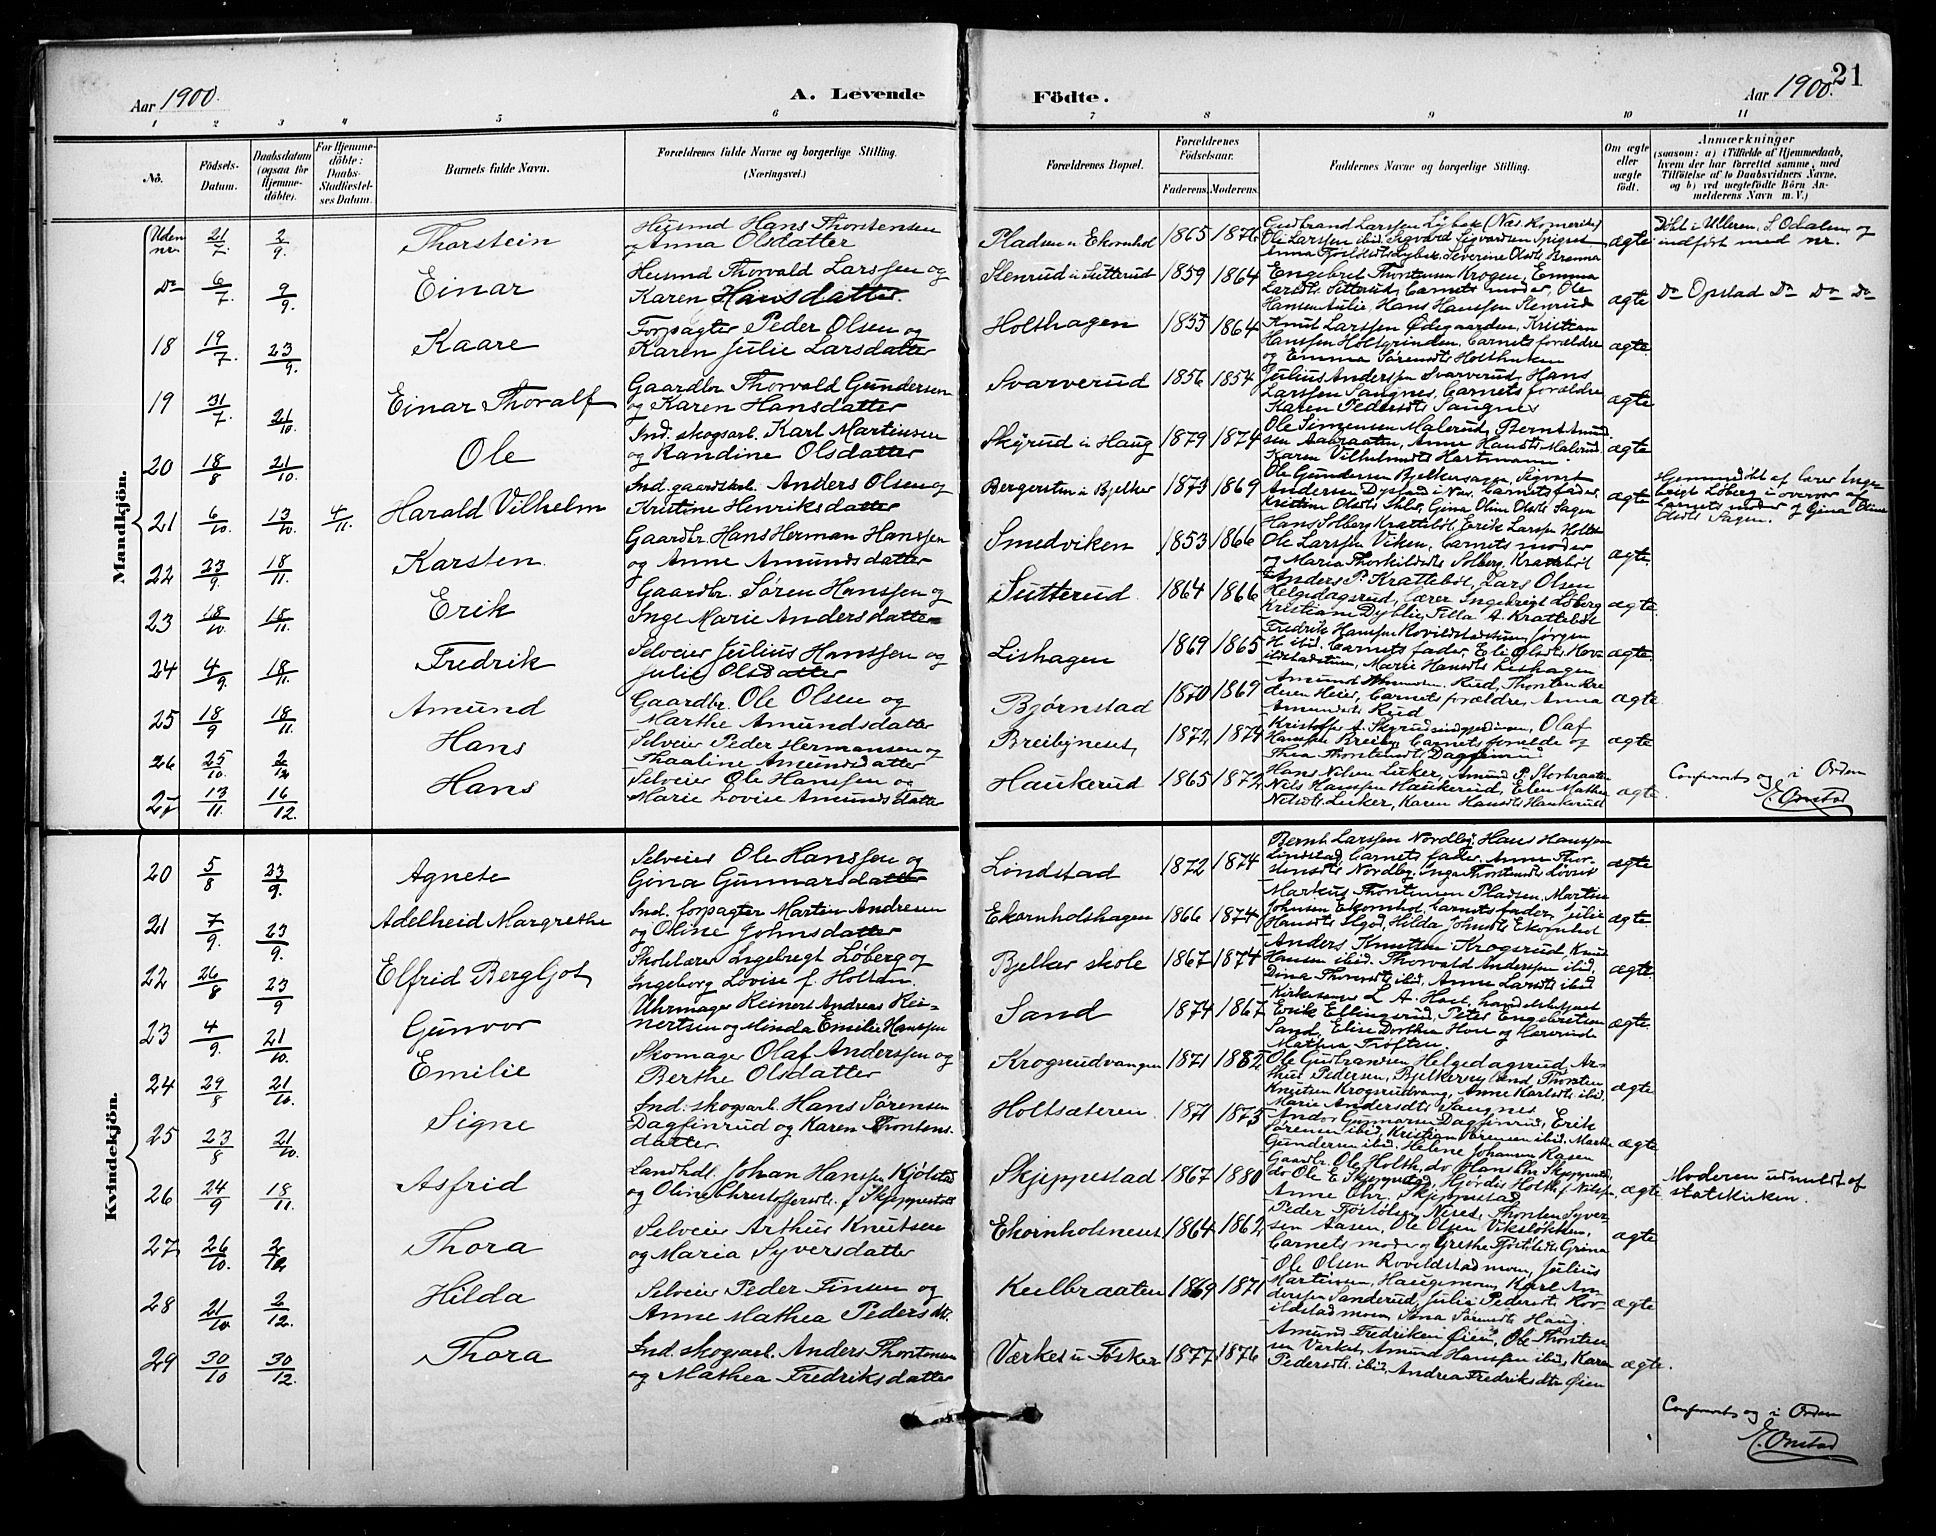 Aar 1900.
A. Levende
Födte.
Aar 1900.
21
1 2 3 4 5 6 7 8 9 10 11
No.
Födsels-Datum.
Daabsdatum (ogsaa for Hjemmedöbte).
For Hjemmedöbte: Daabs-Stadfæstelses Datum.
Barnets fulde Navn.
Forældrenes fulde Navne og borgerlige Stilling. (Næringsvei.)
Forældrenes Bopæl.
Forældrenes Födselsaar.
Faderens. Moderens.
Faddernes Navne og borgerlige Stilling.
Om ægte eller uægte födt.
Anmærkninger
(saasom: a) i Tilfælde af Hjemmedaab, hvem der har forrettet samme, med Tilföielse af to Daabsvidners Navne, og b) ved uægtefödte Börn Anmelderens Navn m. V.)
Mandkjön.
Uden nr. 21/7 2/9 Thorstein Husmd Hans Thorstensen og Anna Olsdatter Pladsen u Ekornhol 1865 1876 Gudbrand Larssen Lybek (Næs Romerike) Ole Larssen ibid. ægte Döbt i Ulleren, S. Odalen, og indfört med nr.
Do 6/7 9/9 Einar Husmd Thorvald Larssen og Karen Hansdatter. Stenrud u Sutterud 1859 1864 Engebret Thorstensen Krogen, Emma Larsdt Sutterud, barnets moder, Ole Hansen Hans Hanssen Stenrud ægte Do Opstad Do Do Do
18 19/7 23/9 Kaare Forpagter Peder Olsen og Karen Julie Larsdatter Holthagen 1855 1864 Knut Larssen Ødegaarden, Kristian Hanssen Holtgrinden, barnets forældre og Emma Sørensdt Holthuken ægte
19 31/7 21/10 Einar Thoralf Gaardbr Thorvald Gundersen og Karen Hansdatter Svarverud 1856 1854 Julius Anderssen Svarverud, Hans Larssen Saugnes, barnets forældre Karen Pedersdt Saugnes ægte
20 18/8 21/10 Ole Ind. skogsarb. Karl Martinsen og Randine Olsdatter Skyrud u Haug 1879 1874 Ole Simensen Malerud, Bernt Amundsen Aabraaten, Anne Hansdt Malerud Karen Vilhelmsdt Hartmann. ægte
21 6/10 13/10 4/11 Harald Vilhelm Ind. gaardskarl Anders Olsen og Kristine Henriksdatter Bergersten u Bjelker 1875 1869 Ole Gundersen Sigvart Andersen Dystad i Næs, barnets fader, Kristine Olsdt Gina Oline Olsdt Sagen ægte Hjemmedöbt af lærer Ingebrigt Löberg i overvær af barnets moder og Gina Oline Olsdt Sagen.
22 23/9 18/11 Karsten Gaardbr. Hans Herman Hanssen og Anne Amundsdatter Smedviken 1853 1866 Hans Solberg Krattebøl, Erik Larssen Ole Larssen Viken, barnets moder og Maria Thorkildsdt Solberg, Krattebøl ægte
23 18/10 18/11 Erik Gaardbr. Søren Hanssen og Inge Marie Andersdatter Sutterud 1864 1866 Anders P. Krattebøl, Lars Olsen Helgedagsrud, lærer Ingebrigt Løberg Kristiane Dyblie, A. Krattebøl ægte
24 4/9 18/11 Fredrik Selveier Julius Hanssen og Julie Olsdatter Lishagen 1869 1865 Fredrik Hanssen Jørgen H. ibid. barnets fader, Eli Olsdt Marie Hansdt Lishagen ægte
25 18/9 18/11 Amund Gaardbr. Ole Olsen og Marthe Amundsdatter Bjørnstad 1870 1869 Amund Rud, Thorsten Heier, barnets forældre, Anna Amundsdt Rud ægte
26 25/10 2/12 Hans Selveier Peder Hermansen og Thaaline Amundsdatter Breibyneset 1872 1874 Kristoffer A. Olaf Hanssen Breiby, barnets forældre og Thea Thorstensdt Dagfinrud ægte
27 13/11 16/12 Hans Selveier Ole Hanssen og Marie Lovise Amundsdatter Haukerud 1865 1872 Hans Nilsen Luker, Amund P. Storbraaten Nils Hanssen Haukerud, Elen Mathea Nilsdt Luker, Karen Hansdt Haukerud ægte. Confereret og i Orden E. Onstad
Kvindekjön.
20 5/8 23/9 Agnete Selveier Ole Hanssen og Gina Gunnarsdatter Lindstad 1872 1874 Bernt Larssen Nordby, Hans Hanssen Lindstad, barnets fader, Anne Thorstensdt Nordby, Inga Thorstensdt ægte
21 7/9 23/9 Adelheid Margrethe Ind. forpagter Martin Andresen og Oline Johnsdatter Ekornholshagen 1866 1874 Markus Thorstensen Pladsen, Martin Johnsen Ekornhol, barnets fader, Julie Hansdt Hilda Johnsdt Ekornhol ægte
22 26/8 23/9 Elfrid Bergljot Skolelærer Ingebrigt Löberg og Ingeborg Lovise f. Holter. Bjelker skole 1867 1874 Anders Knutsen Krogsrud, Knut Hansen ibid. Thorvald Anderssen ibid, Dina Thorsdt ibid, Anne Larsdt ibid ægte.
23 4/9 21/10 Gunvor Uhrmager Reinert Andreas Reinertsen og Minda Emilie Hanssen Sand 1874 1867 Kirkesanger L. A. Hoel, handelsbetjent Erik Ellingsrud, Peter Engebretsen Sand, Elise Dorthea Hoel og lærerinde Mathea Trøften ægte
24 29/8 21/10 Emilie Skomager Olaf Anderssen og Berthe Olsdatter Krogsrudvangen 1871 1882 Ole Gudbrandsen Helgedagsrud, Arthur Pedersen, Thorsten Knutsen Krogsrudvang, Anne Karlsdt ibid. Marie Andersdt Saugnes ægte
25 23/8 21/10 Signe Ind. skogsarb. Hans Sørensen Dagfinrud og Karen Thorstensdatter. Holtsæteren 1871 1875 Andor Gunnarsen Dagfinrud, Erik Sørensen ibid, Kristian Sørensen ibid, Gundersen ibid. Helene Johansen Kasen ægte
26 24/9 18/11 Asfrid Landhdl. Johan Hanssen Kjølstad og Oline Christoffersdt. f. Skjeppestad Skjeppestad 1867 1880 Gaardbr. Ole Holth, do Hans Chr. Skjeppestad, do Ole E. Skjeppestad, Hjørdis Holth f. Nilssen, Anne Chr. Skjeppestad ægte Moderen udmeldt af statskirken.
27 26/10 2/12 Thora Selveier Arthur Knutsen og Maria Syversdatter Ekornholsneset 1864 1862 Peder Nered, Thorsten Syversen Aasen, Ole Olsen Vikslökken, barnets moder og Grethe ægte
28 21/10 2/12. Hilda Selveier Peder Finsen og Anne Mathea Pedersdt. Kulbraaten 1869 1871 Ole Olsen Rovildstadmoen, Julius Martinsen, Haugsmoen, Karl Andersen Sanderud, Julie Pedersdt Rovildstadmoen, Sina Sørensdt Haug. ægte
29 30/10 30/12. Thora Ind. skogsarb. Anders Thorstensen og Mathea Fredriksdatter Værket u Fosker 1877 1876 Amund Fredriksen Øien, Ole Thorstensen Værket, Amund Hanssen ibid, Karen Pedersdt ibid, Andrea Fredriksdtr Øien ægte.
Confereret og i Orden
E. Onstad